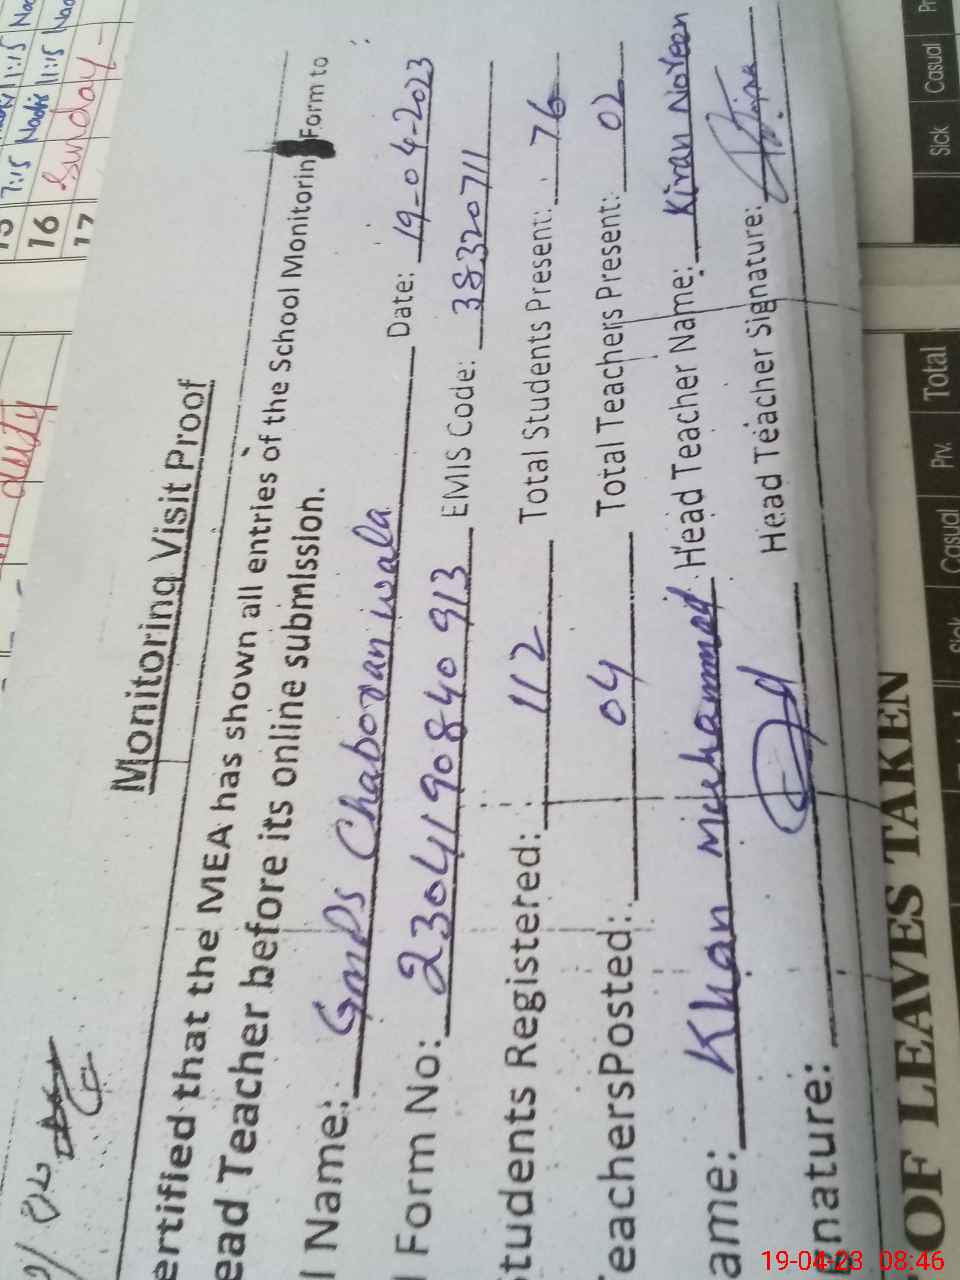 Monitoring Visit Proof
ertified that the MEA has shown all entries of the School Monitorin Form to
ead Teacher before its online submission.
l Name: GMPS Chabovan wala Date: 19-04-2023
l Form No: 2304190840 913 EMIS Code: 38320711
Students Registered: 112 Total Students Present: 76
TeachersPosted: 04 Total Teachers Present: 02
ame: Khan Muhammad Head Teacher Name: Kiran Noreen
gnature: Head Teacher Signature:
7:15 Nadir 11:15
16 Sunday
17
duty
Sick Casual
Casual Prv. Total
OF LEAVES TAKEN
19-04-23 08:46